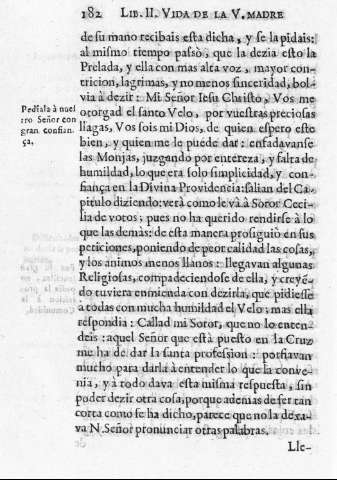 182 LIB. II. VIDA DE LA V. MADRE
de su mano recibais esta dicha, y se la pidais:
al mismo tiempo passò, que la dezia esto la
Prelada, y ella con mas alta voz, mayor con-
tricion, lagrimas, y no menos sinceridad, bol-
via à dezir: Mi Señor Iesu Christo, Vos me
otorgad el santo Velo, por vuestras preciosas
llagas, Vos sois mi Dios, de quien espero este
bien, y quien me le puede dar: enfadavanse
las Monjas, juzgando por entereza, y falta de
humildad, lo que era solo simplicidad, y con-
fiança en la Divina Providencia: salian del Ca-
pitulo diziendo: verà como le và à Soror Ceci-
lia de votos; pues no ha querido rendirse à lo
que las demàs: de esta manera prosiguiò en sus
peticiones, poniendo de peor calidad las cosas,
y los animos menos llanos: llegavan algunas
Religiosas, compadeciendose de ella, y creyē-
do tuviera enmienda con dezirla, que pidiesse
a todas con mucha humildad el Velo, mas ella
respondia: Callad mi Soror, que no lo enten
deis: aquel Señor que està puesto en la Cruz
me ha de dar la santa profession: porfiavan
mucho para darla à entender lo que la conve-
nia, y à todo dava esta misma respuesta, sin
poder dezir otra cosa, porque ademas de ser tan
corta como se ha dicho, parece que no la dexa-
va N. Señor pronunciar otras palabras.
Lle-
Pediala à nues
tro Señor con
gran confian-
ça.